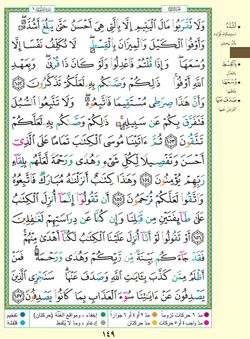 وَلَا تَقْرَبُوا۟ مَالَ ٱلْيَتِيمِ إِلَّا بِٱلَّتِى هِىَ أَحْسَنُ حَتَّىٰ يَبْلُغَ أَشُدَّهُۥ
وَأَوْفُوا۟ ٱلْكَيْلَ وَٱلْمِيزَانَ بِٱلْقِسْطِ ۖ لَا نُكَلِّفُ نَفْسًا إِلَّا
وُسْعَهَا ۖ وَإِذَا قُلْتُمْ فَٱعْدِلُوا۟ وَلَوْ كَانَ ذَا قُرْبَىٰ ۖ وَبِعَهْدِ
ٱللَّهِ أَوْفُوا۟ ۚ ذَٰلِكُمْ وَصَّىٰكُم بِهِۦ لَعَلَّكُمْ تَذَكَّرُونَ ١٥٢
وَأَنَّ هَٰذَا صِرَٰطِى مُسْتَقِيمًا فَٱتَّبِعُوهُ ۖ وَلَا تَتَّبِعُوا۟ ٱلسُّبُلَ
فَتَفَرَّقَ بِكُمْ عَن سَبِيلِهِۦ ۚ ذَٰلِكُمْ وَصَّىٰكُم بِهِۦ لَعَلَّكُمْ
تَتَّقُونَ ١٥٣ ثُمَّ ءَاتَيْنَا مُوسَى ٱلْكِتَٰبَ تَمَامًا عَلَى ٱلَّذِىٓ
أَحْسَنَ وَتَفْصِيلًا لِّكُلِّ شَىْءٍ وَهُدًى وَرَحْمَةً لَّعَلَّهُم بِلِقَآءِ
رَبِّهِمْ يُؤْمِنُونَ ١٥٤ وَهَٰذَا كِتَٰبٌ أَنزَلْنَٰهُ مُبَارَكٌ فَٱتَّبِعُوهُ
وَٱتَّقُوا۟ لَعَلَّكُمْ تُرْحَمُونَ ١٥٥ أَن تَقُولُوٓا۟ إِنَّمَآ أُنزِلَ ٱلْكِتَٰبُ
عَلَىٰ طَآئِفَتَيْنِ مِن قَبْلِنَا وَإِن كُنَّا عَن دِرَاسَتِهِمْ لَغَٰفِلِينَ
١٥٦ أَوْ تَقُولُوا۟ لَوْ أَنَّآ أُنزِلَ عَلَيْنَا ٱلْكِتَٰبُ لَكُنَّآ أَهْدَىٰ مِنْهُمْ ۚ
فَقَدْ جَآءَكُم بَيِّنَةٌ مِّن رَّبِّكُمْ وَهُدًى وَرَحْمَةٌ ۚ فَمَنْ
أَظْلَمُ مِمَّن كَذَّبَ بِـَٔايَٰتِ ٱللَّهِ وَصَدَفَ عَنْهَا ۗ سَنَجْزِى ٱلَّذِينَ
يَصْدِفُونَ عَنْ ءَايَٰتِنَا سُوٓءَ ٱلْعَذَابِ بِمَا كَانُوا۟ يَصْدِفُونَ ١٥٧
١٤٩